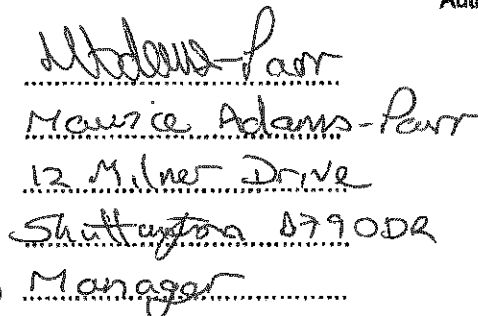 MAdams-Parr
Maurice Adams-Parr
12 Milner Drive
Shuttington B790DR
Manager